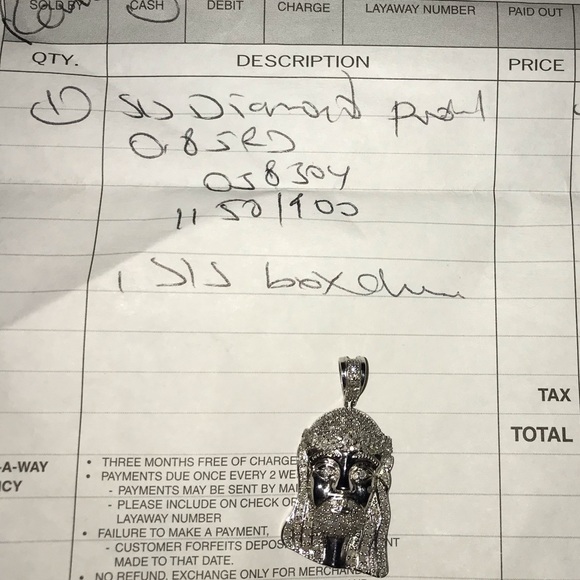 SOLD BY CASH DEBIT CHARGE LAYAWAY NUMBER PAID OUT
QTY. DESCRIPTION PRICE
1 S/S Diamond
0.85RD
058304
1150/900
1 S/S box
TAX
TOTAL
-A-WAY
ICY
• THREE MONTHS FREE OF CHARGE
• PAYMENTS DUE ONCE EVERY 2 WE
- PAYMENTS MAY BE SENT BY MAI
- PLEASE INCLUDE ON CHECK OR
LAYAWAY NUMBER
• FAILURE TO MAKE A PAYMENT,
- CUSTOMER FORFEITS DEPOS NT
MADE TO THAT DATE.
• NO REFUND, EXCHANGE ONLY FOR MERCHAN